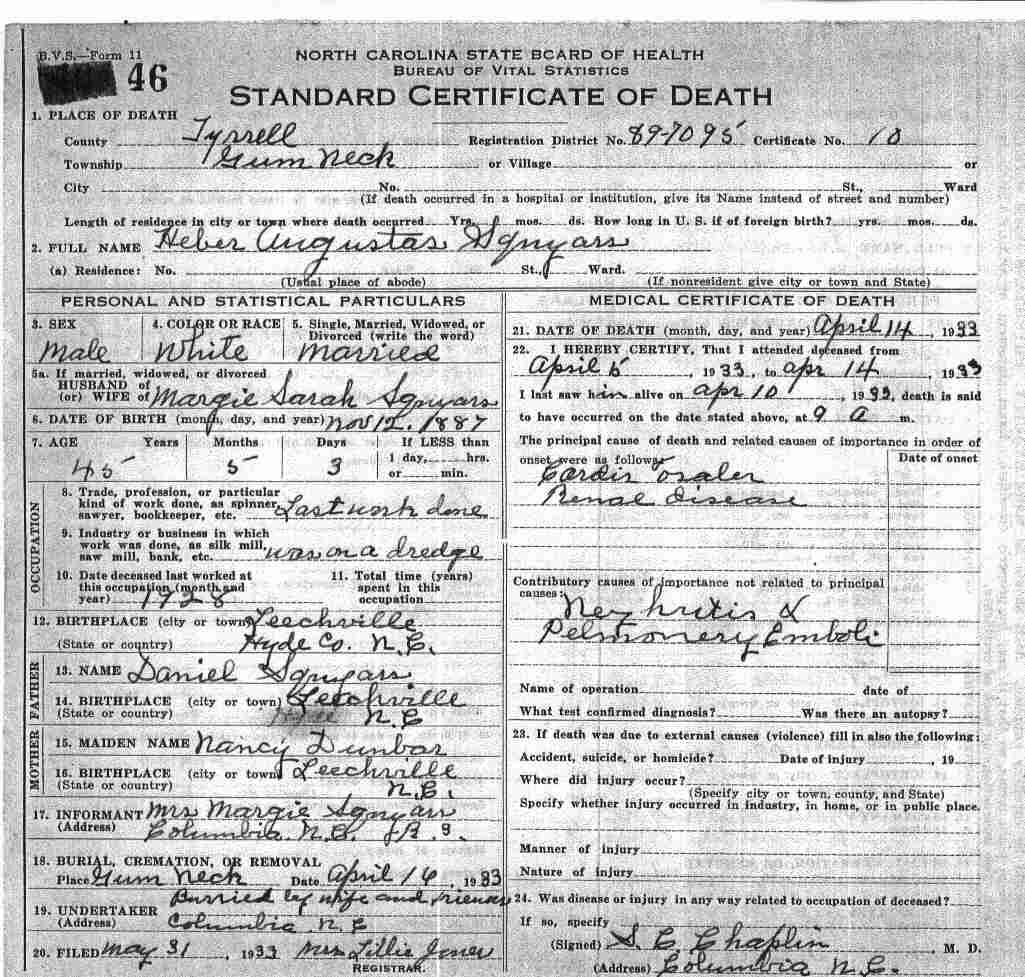 B.V.S.—Form 11
46
NORTH CAROLINA STATE BOARD OF HEALTH
BUREAU OF VITAL STATISTICS
STANDARD CERTIFICATE OF DEATH
1. PLACE OF DEATH
County Tyrrell Registration District No. 89-7095 Certificate No. 10
Township Gum Neck or Village or
City No. St., Ward
(If death occurred in a hospital or institution, give its Name instead of street and number)
Length of residence in city or town where death occurred Yrs. mos. ds. How long in U. S. if of foreign birth? yrs. mos. ds.
2. FULL NAME Heber Augustas Sqnyars
(a) Residence: No. St., Ward.
(Usual place of abode) (If nonresident give city or town and State)
PERSONAL AND STATISTICAL PARTICULARS
3. SEX 4. COLOR OR RACE 5. Single, Married, Widowed, or
Divorced (write the word)
Male White Married
5a. If married, widowed, or divorced
HUSBAND of
(or) WIFE of Margie Sarah Sqnyars
6. DATE OF BIRTH (month, day, and year) Nov 12. 1887
7. AGE Years Months Days If LESS than
1 day, hrs.
45 5 3 or min.
OCCUPATION
8. Trade, profession, or particular
kind of work done, as spinner,
sawyer, bookkeeper, etc. Last work done
9. Industry or business in which
work was done, as silk mill,
saw mill, bank, etc. was on a dredge
10. Date deceased last worked at
this occupation (month and
year) 1928
11. Total time (years)
spent in this
occupation
12. BIRTHPLACE (city or town) Leechville
(State or country) Hyde Co. N.C.
FATHER
13. NAME Daniel Sqnyars
14. BIRTHPLACE (city or town) Leechville
(State or country) N.C
MOTHER
15. MAIDEN NAME Nancy Dunbar
16. BIRTHPLACE (city or town) Leechville
(State or country) N.C.
17. INFORMANT Mrs Margie Sqnyars
(Address) Columbia N.C.
18. BURIAL, CREMATION, OR REMOVAL
Place Gum Neck Date April 16, 1933
Burried by wife and friends
19. UNDERTAKER
(Address) Columbia N.C
20. FILED May 31, 1933 Mrs Lillie Jones
REGISTRAR.
MEDICAL CERTIFICATE OF DEATH
21. DATE OF DEATH (month, day, and year) April 14, 1933
22. I HEREBY CERTIFY, That I attended deceased from
April 6, 1933, to Apr 14, 1933
I last saw him alive on Apr 10, 1933, death is said
to have occurred on the date stated above, at 9 a m.
The principal cause of death and related causes of importance in order of
onset were as follows: Date of onset
Renal disease
Contributory causes of importance not related to principal
causes:
Nephritis &
Pelmonery Emboli
Name of operation date of
What test confirmed diagnosis? Was there an autopsy?
23. If death was due to external causes (violence) fill in also the following:
Accident, suicide, or homicide? Date of injury , 19
Where did injury occur?
(Specify city or town, county, and State)
Specify whether injury occurred in industry, in home, or in public place.
Manner of injury
Nature of injury
24. Was disease or injury in any way related to occupation of deceased?
If so, specify
(Signed) S. C Chaplin M. D.
(Address) Columbia N.C.